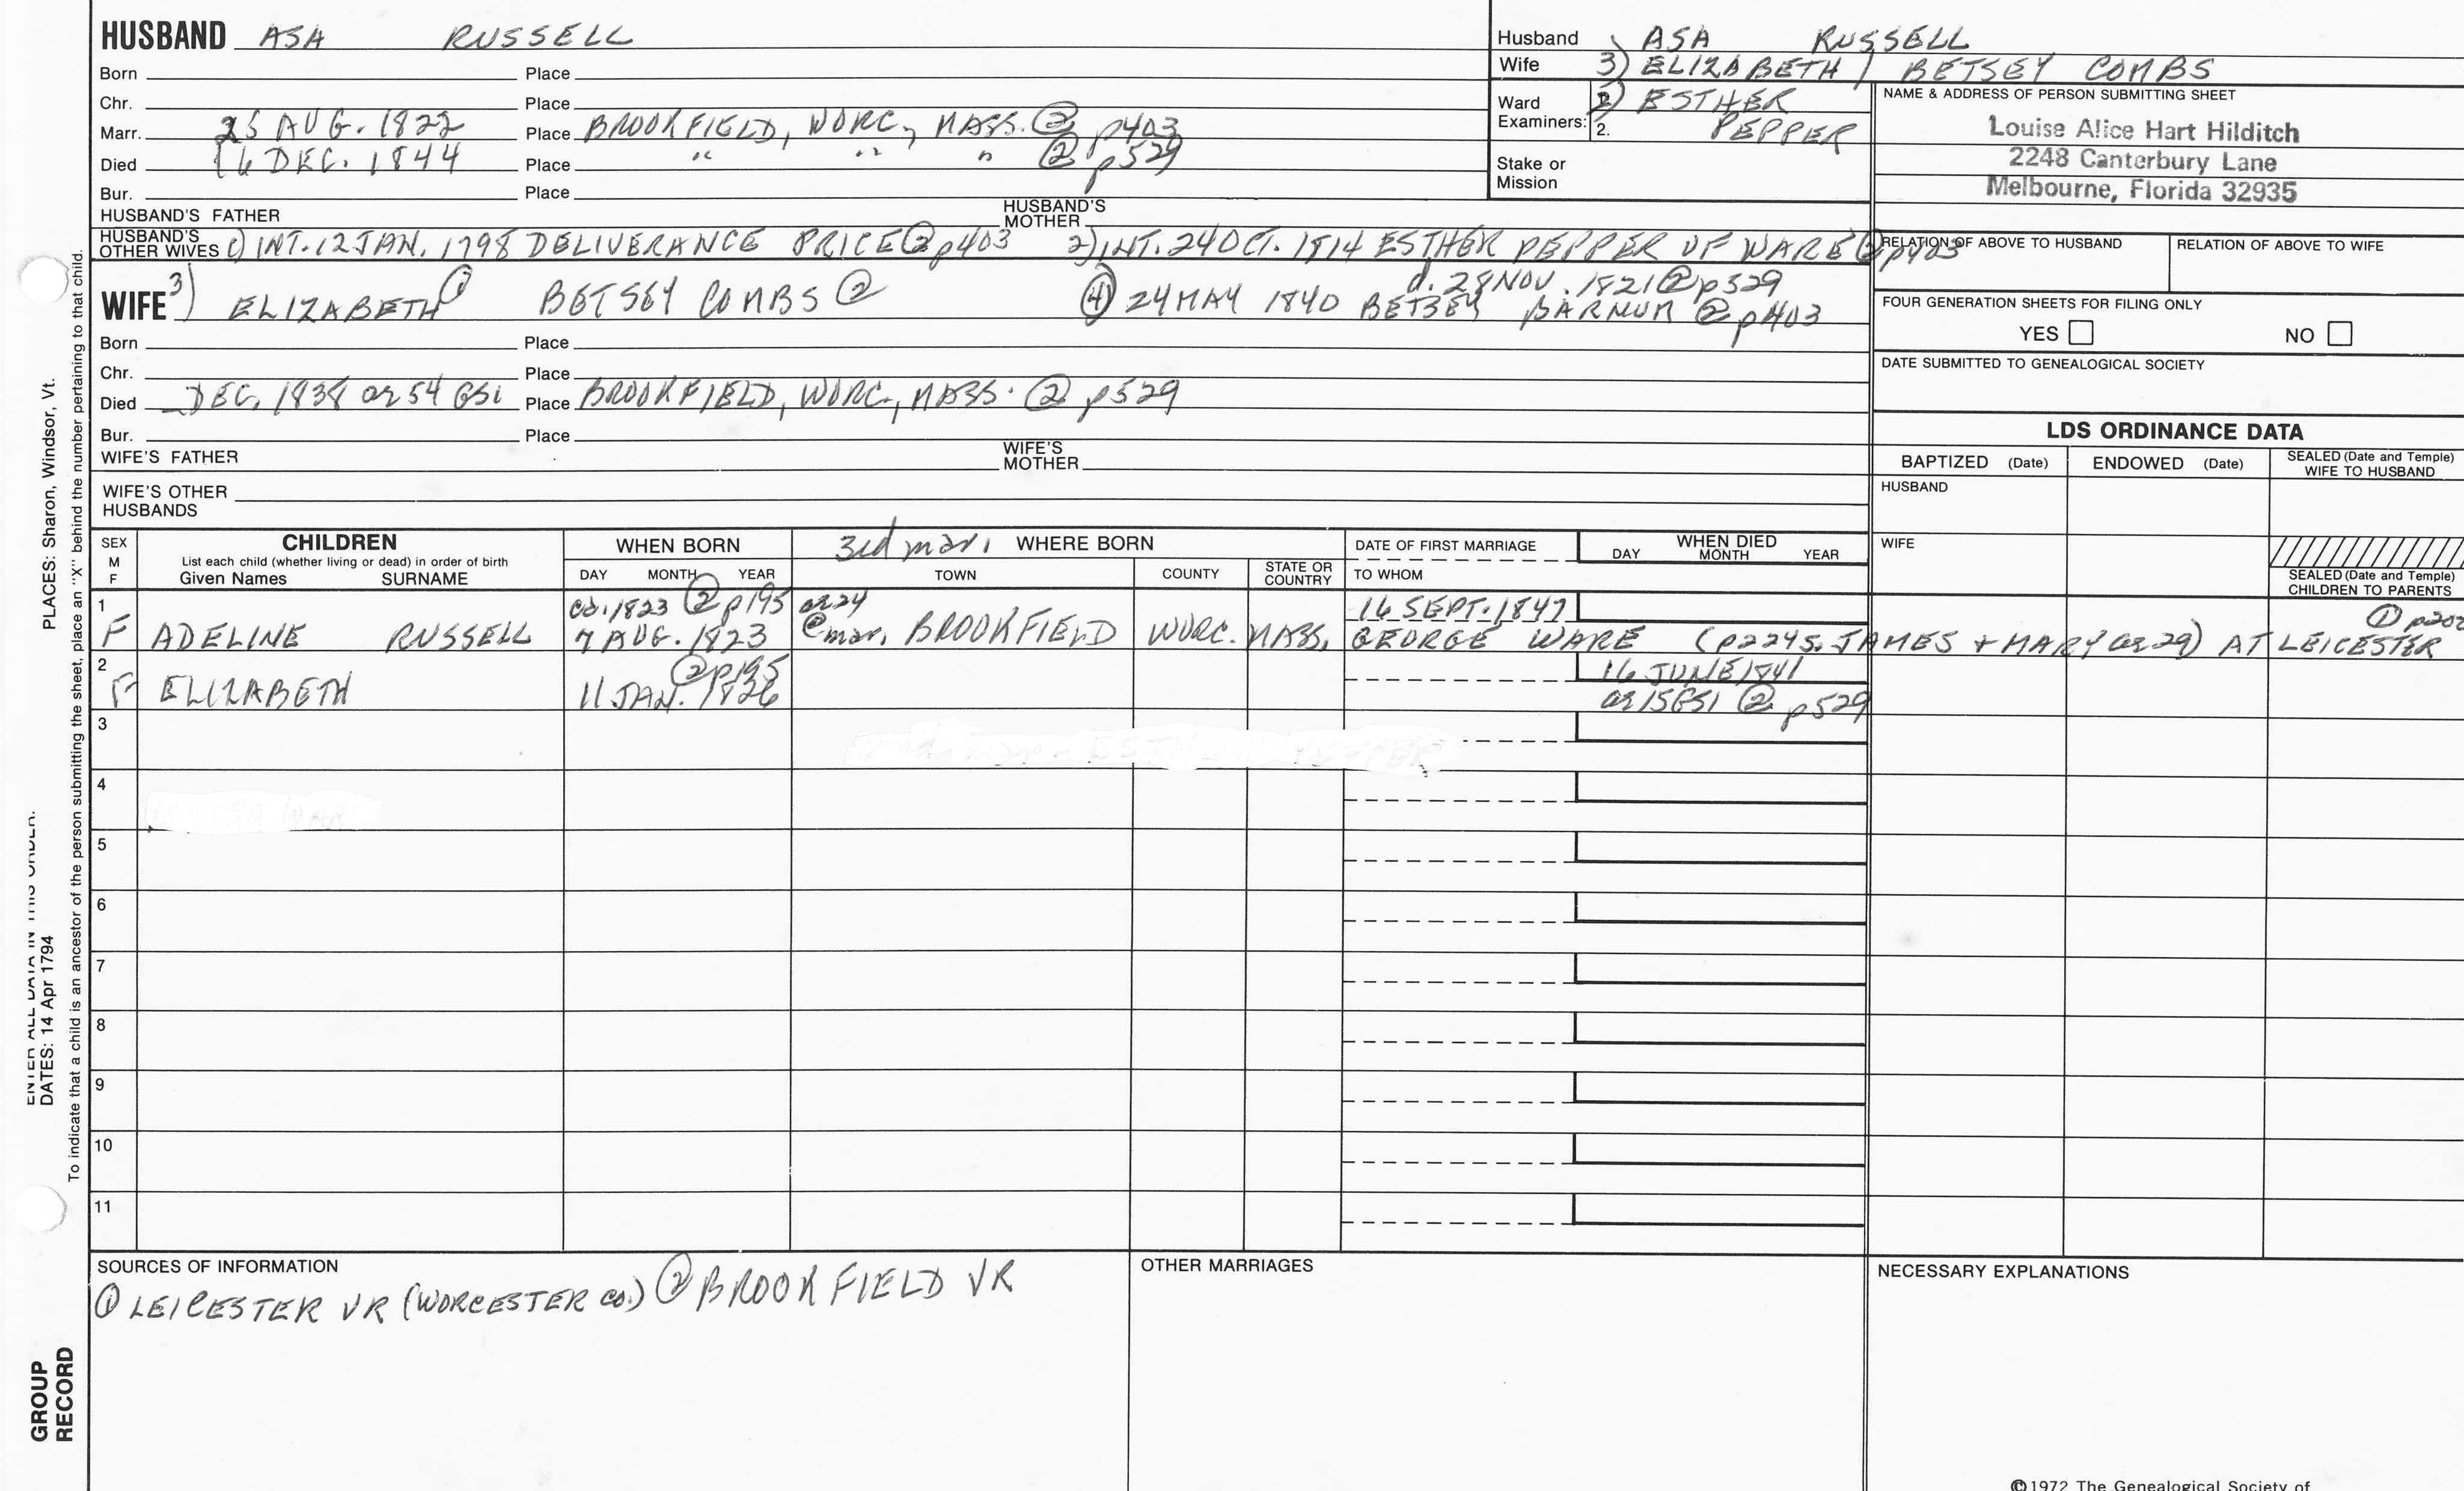 HUSBAND ASA RUSSELL
Born Place
Chr. Place
Marr. 25 AUG. 1822 Place BROOKFIELD, WORC., MASS. ② p403
Died 16 DEC. 1844 Place " " " ② p529
Bur. Place
HUSBAND'S FATHER HUSBAND'S MOTHER
HUSBAND'S OTHER WIVES 1) INT. 12 JAN. 1798 DELIVERANCE PRICE ② p403 2) INT. 24 OCT. 1814 ESTHER PEPPER OF WARE ② p403
d. 28 NOV. 1821 ② p529
WIFE 3) ELIZABETH ① BETSEY COMBS ② ④ 24 MAY 1840 BETSEY BARNUM ② p403
Born Place
Chr. Place
Died DEC. 1838 ae 54 GS1 Place BROOKFIELD, WORC., MASS. ② p529
Bur. Place
WIFE'S FATHER WIFE'S MOTHER
WIFE'S OTHER HUSBANDS
Husband ASA RUSSELL
Wife 3) ELIZABETH / BETSEY COMBS
Ward Examiners: 2) ESTHER
2. PEPPER
Stake or Mission
NAME & ADDRESS OF PERSON SUBMITTING SHEET
Louise Alice Hart Hilditch
2248 Canterbury Lane
Melbourne, Florida 32935
RELATION OF ABOVE TO HUSBAND RELATION OF ABOVE TO WIFE
FOUR GENERATION SHEETS FOR FILING ONLY
YES NO
DATE SUBMITTED TO GENEALOGICAL SOCIETY
LDS ORDINANCE DATA
BAPTIZED (Date) ENDOWED (Date) SEALED (Date and Temple) WIFE TO HUSBAND
HUSBAND
WIFE
SEALED (Date and Temple) CHILDREN TO PARENTS
SEX M F
CHILDREN
List each child (whether living or dead) in order of birth
Given Names SURNAME
WHEN BORN
DAY MONTH YEAR
3rd mar. WHERE BORN
TOWN COUNTY STATE OR COUNTRY
DATE OF FIRST MARRIAGE
TO WHOM
WHEN DIED
DAY MONTH YEAR
1 ca. 1823 ② p195 ae 24 16 SEPT. 1847 ①
F ADELINE RUSSELL 7 AUG. 1823 @ mar. BROOKFIELD WORC. MASS. GEORGE WARE (p224 S. JAMES + MARY ae 29) AT LEICESTER
2 ② p195 16 JUNE 1841
F ELIZABETH 11 JAN. 1826 ae 15 GS1 ② p529
3
4
5
6
7
8
9
10
11
SOURCES OF INFORMATION
① LEICESTER VR (WORCESTER CO.) ② BROOKFIELD VR
OTHER MARRIAGES
NECESSARY EXPLANATIONS
©1972 The Genealogical Society of
PLACES: Sharon, Windsor, Vt.
ENTER ALL DATA IN THIS ORDER:
DATES: 14 Apr 1794
To indicate that a child is an ancestor of the person submitting the sheet, place an "X" behind the number pertaining to that child.
GROUP RECORD